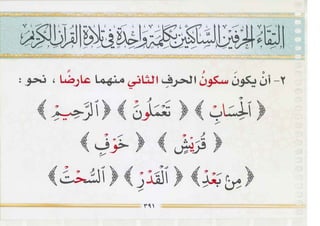 التقاء الحرفين الساكنين بكلمة واحدة في تلاوة القرآن الكريم
٢- أنْ يكونَ سكونُ الحرفِ الثاني منهما عارضًا ، نحو :
﴿ ٱلْحِسَابْ ﴾ ﴿ تَعْمَلُونْ ﴾ ﴿ ٱلرَّحِيمْ ﴾
﴿ قُرَيْشْ ﴾ ﴿ خَوْفْ ﴾
﴿ مِنۢ بَعْدْ ﴾ ﴿ ٱلْقَدْرْ ﴾ ﴿ ٱلسُّحْتْ ﴾
٣٩١